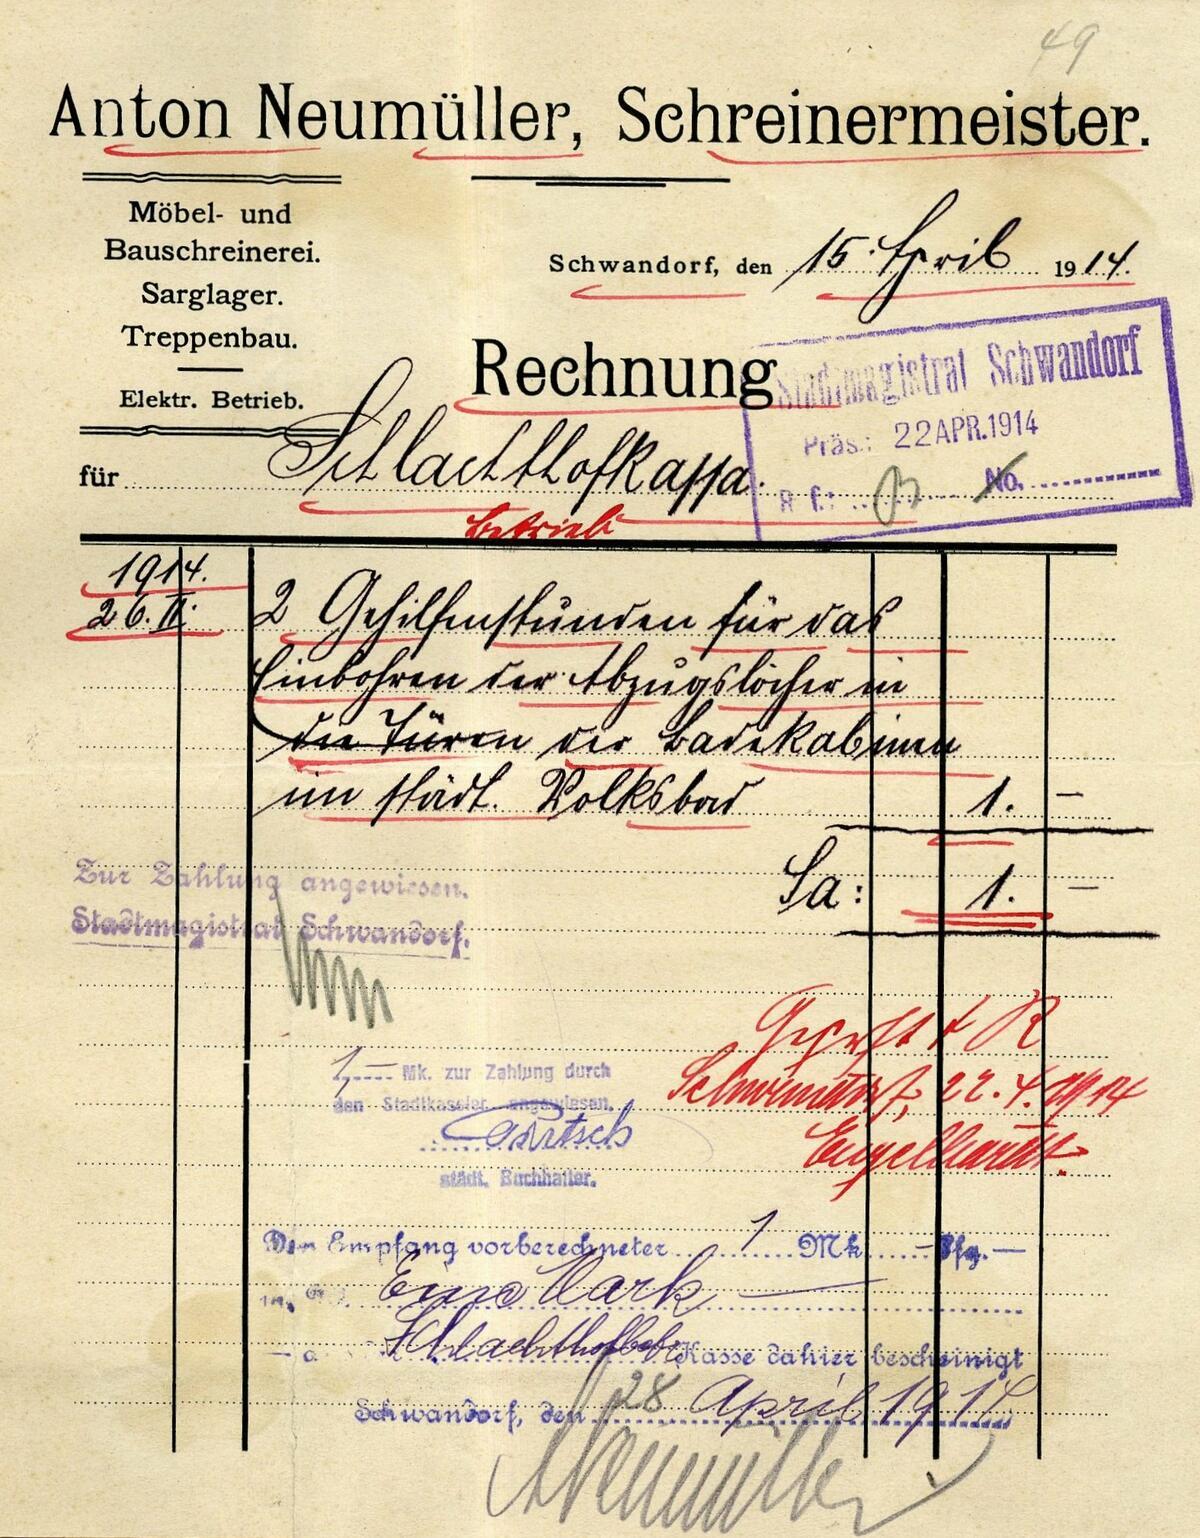 49
Anton Neumüller, Schreinermeister.
Möbel- und
Bauschreinerei.
Sarglager.
Treppenbau.
Elektr. Betrieb.
Schwandorf, den 15. April 1914.
Rechnung
Stadtmagistrat Schwandorf
Präs.: 22 APR. 1914
No.
für Schlachthofkassa.
Betrieb
1914.
26. II. 2 Gehilfenstunden für das
Einbohren der Abzugslöcher in
die Türen der Badekabinen
im städt. Volksbad 1. —
Sa: 1. —
Zur Zahlung angewiesen.
Stadtmagistrat Schwandorf.
Geprüft
Schwandorf, 22. 4. 1914
Engelhardt.
1,— Mk. zur Zahlung durch
den Stadtkassier angewiesen.
städt. Buchhalter.
Den Empfang vorberechneter 1 Mk — Pfg. —
Eine Mark —
Kasse dahier bescheinigt
Schwandorf, den 28 April 1914
A Neumüller